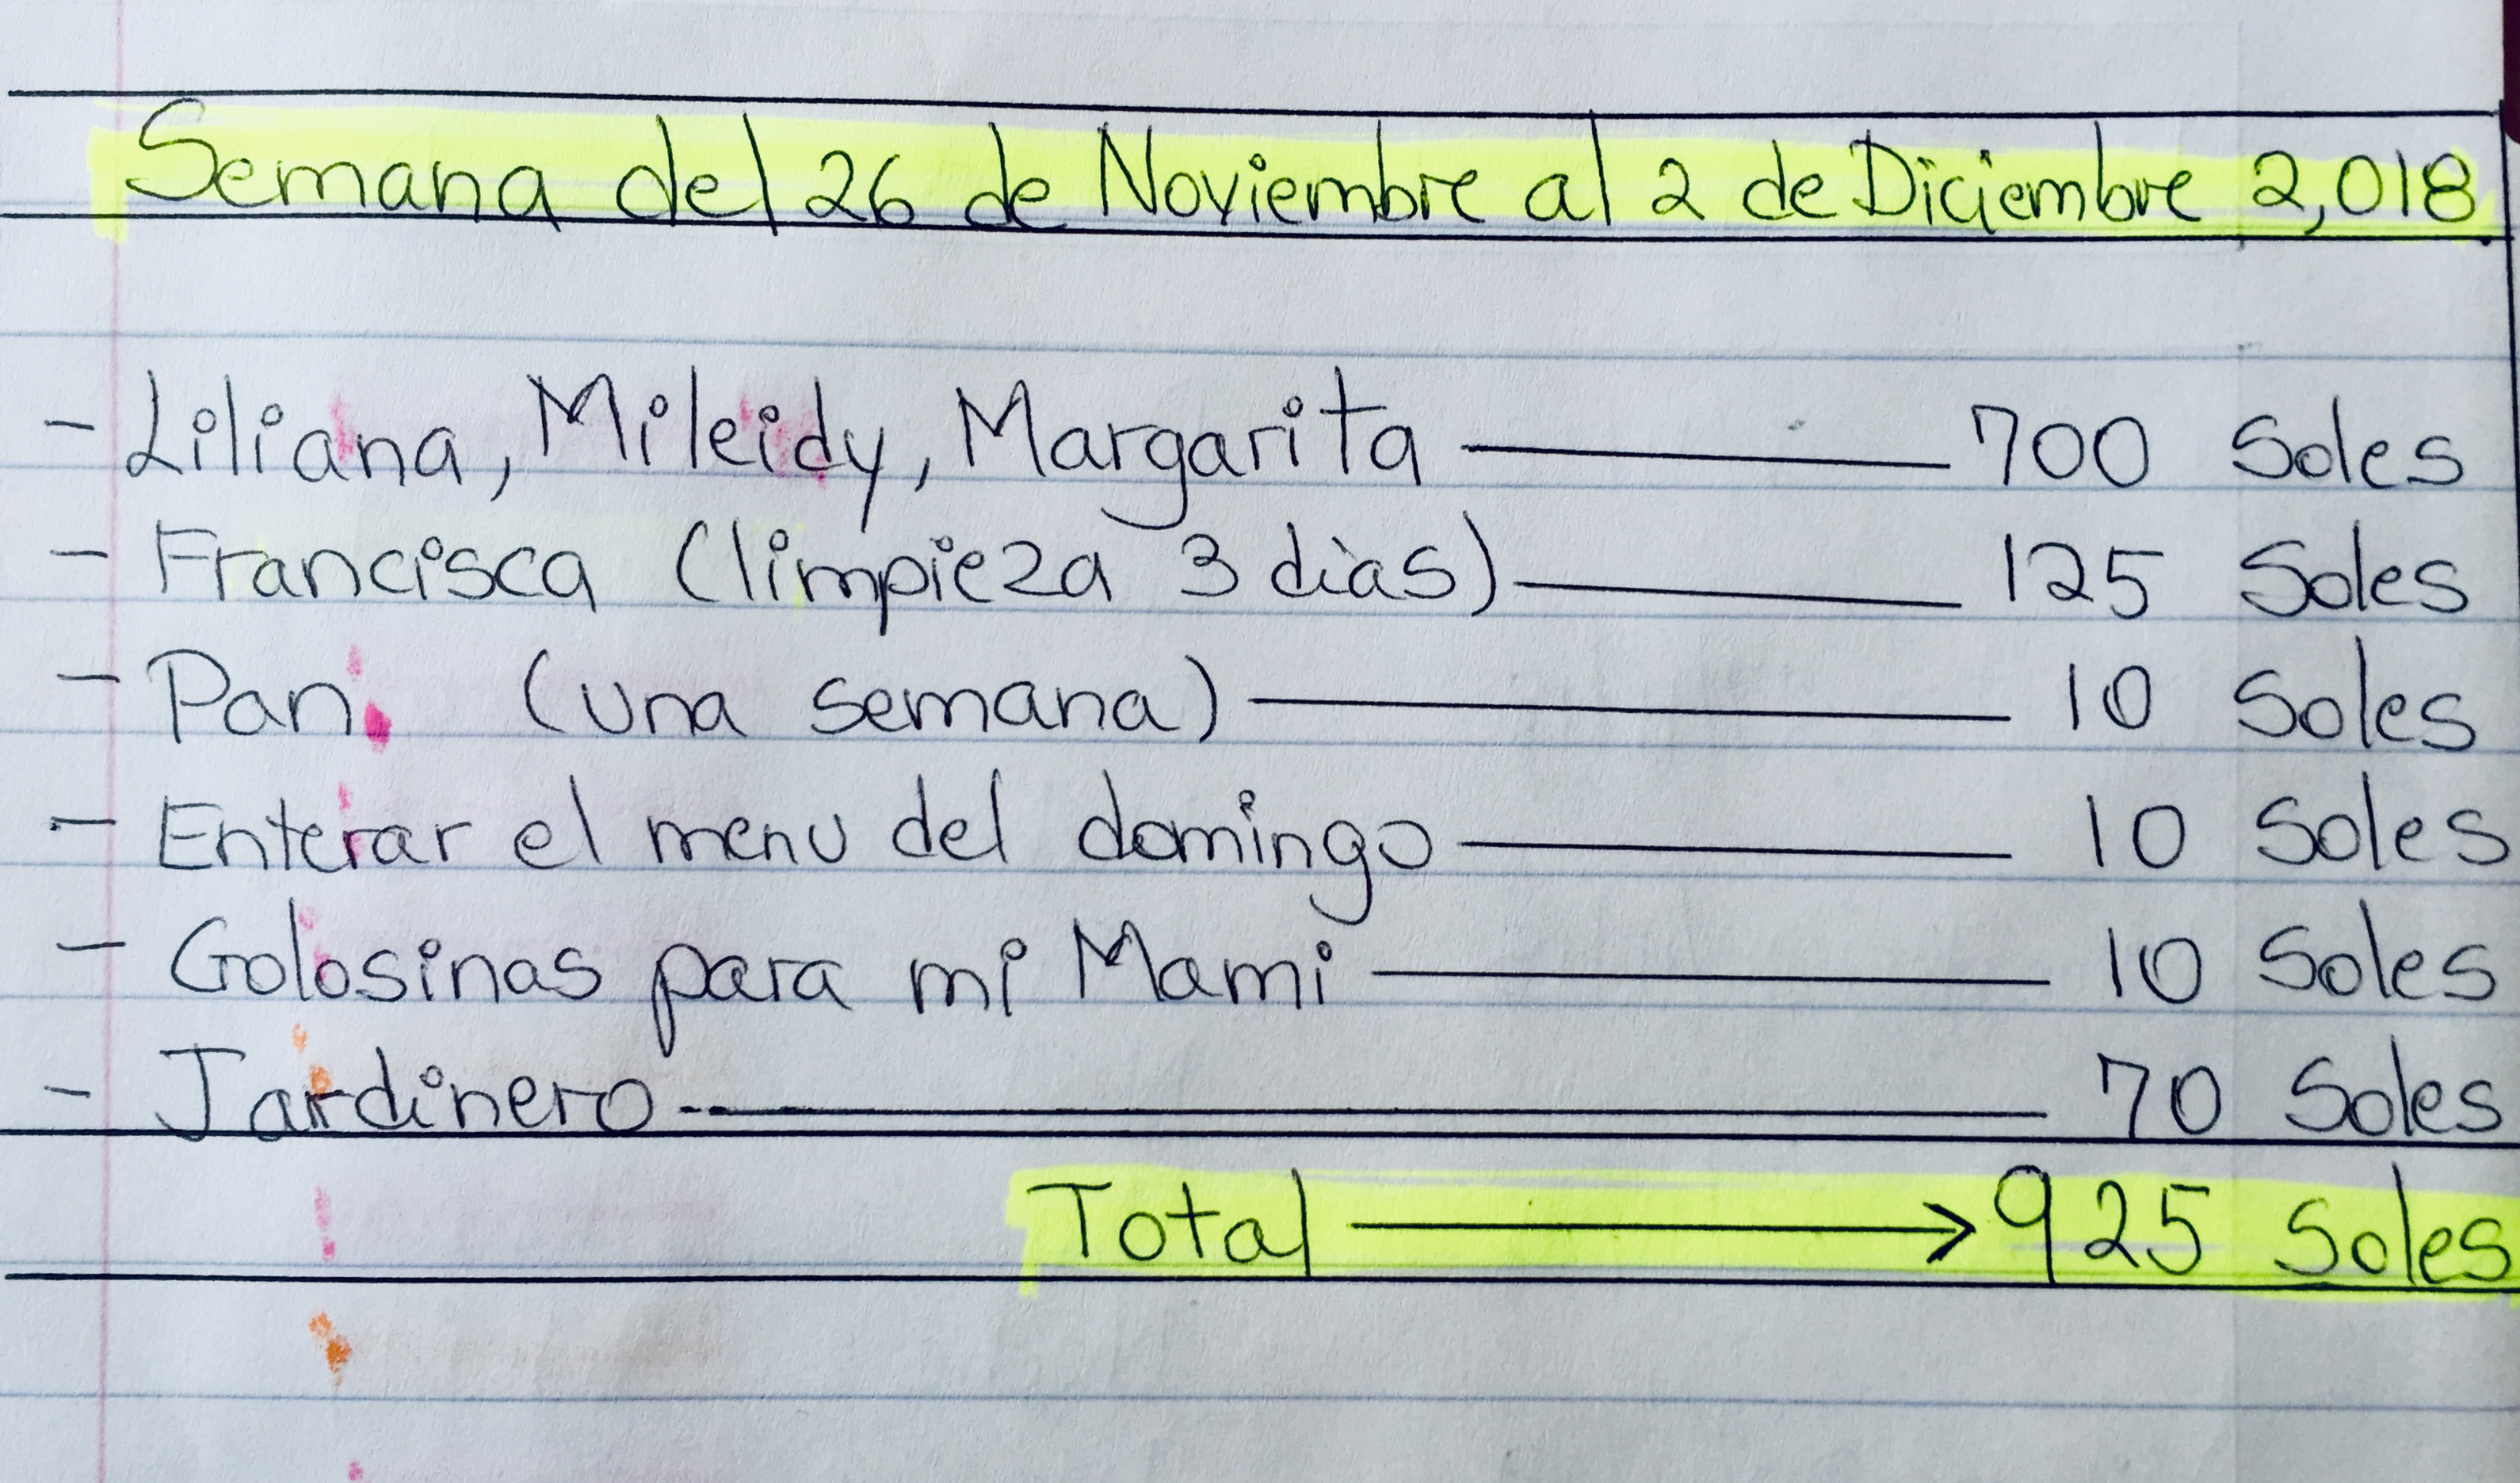 Semana del 26 de Noviembre al 2 de Diciembre 2,018.
- Liliana, Mileidy, Margarita —— 700 Soles
- Francisca (limpieza 3 dìas) —— 125 Soles
- Pan. (una semana) —— 10 Soles
- Enterar el menu del domingo —— 10 Soles
- Golosinas para mi Mami —— 10 Soles
- Jardinero —— 70 Soles
Total → 925 Soles